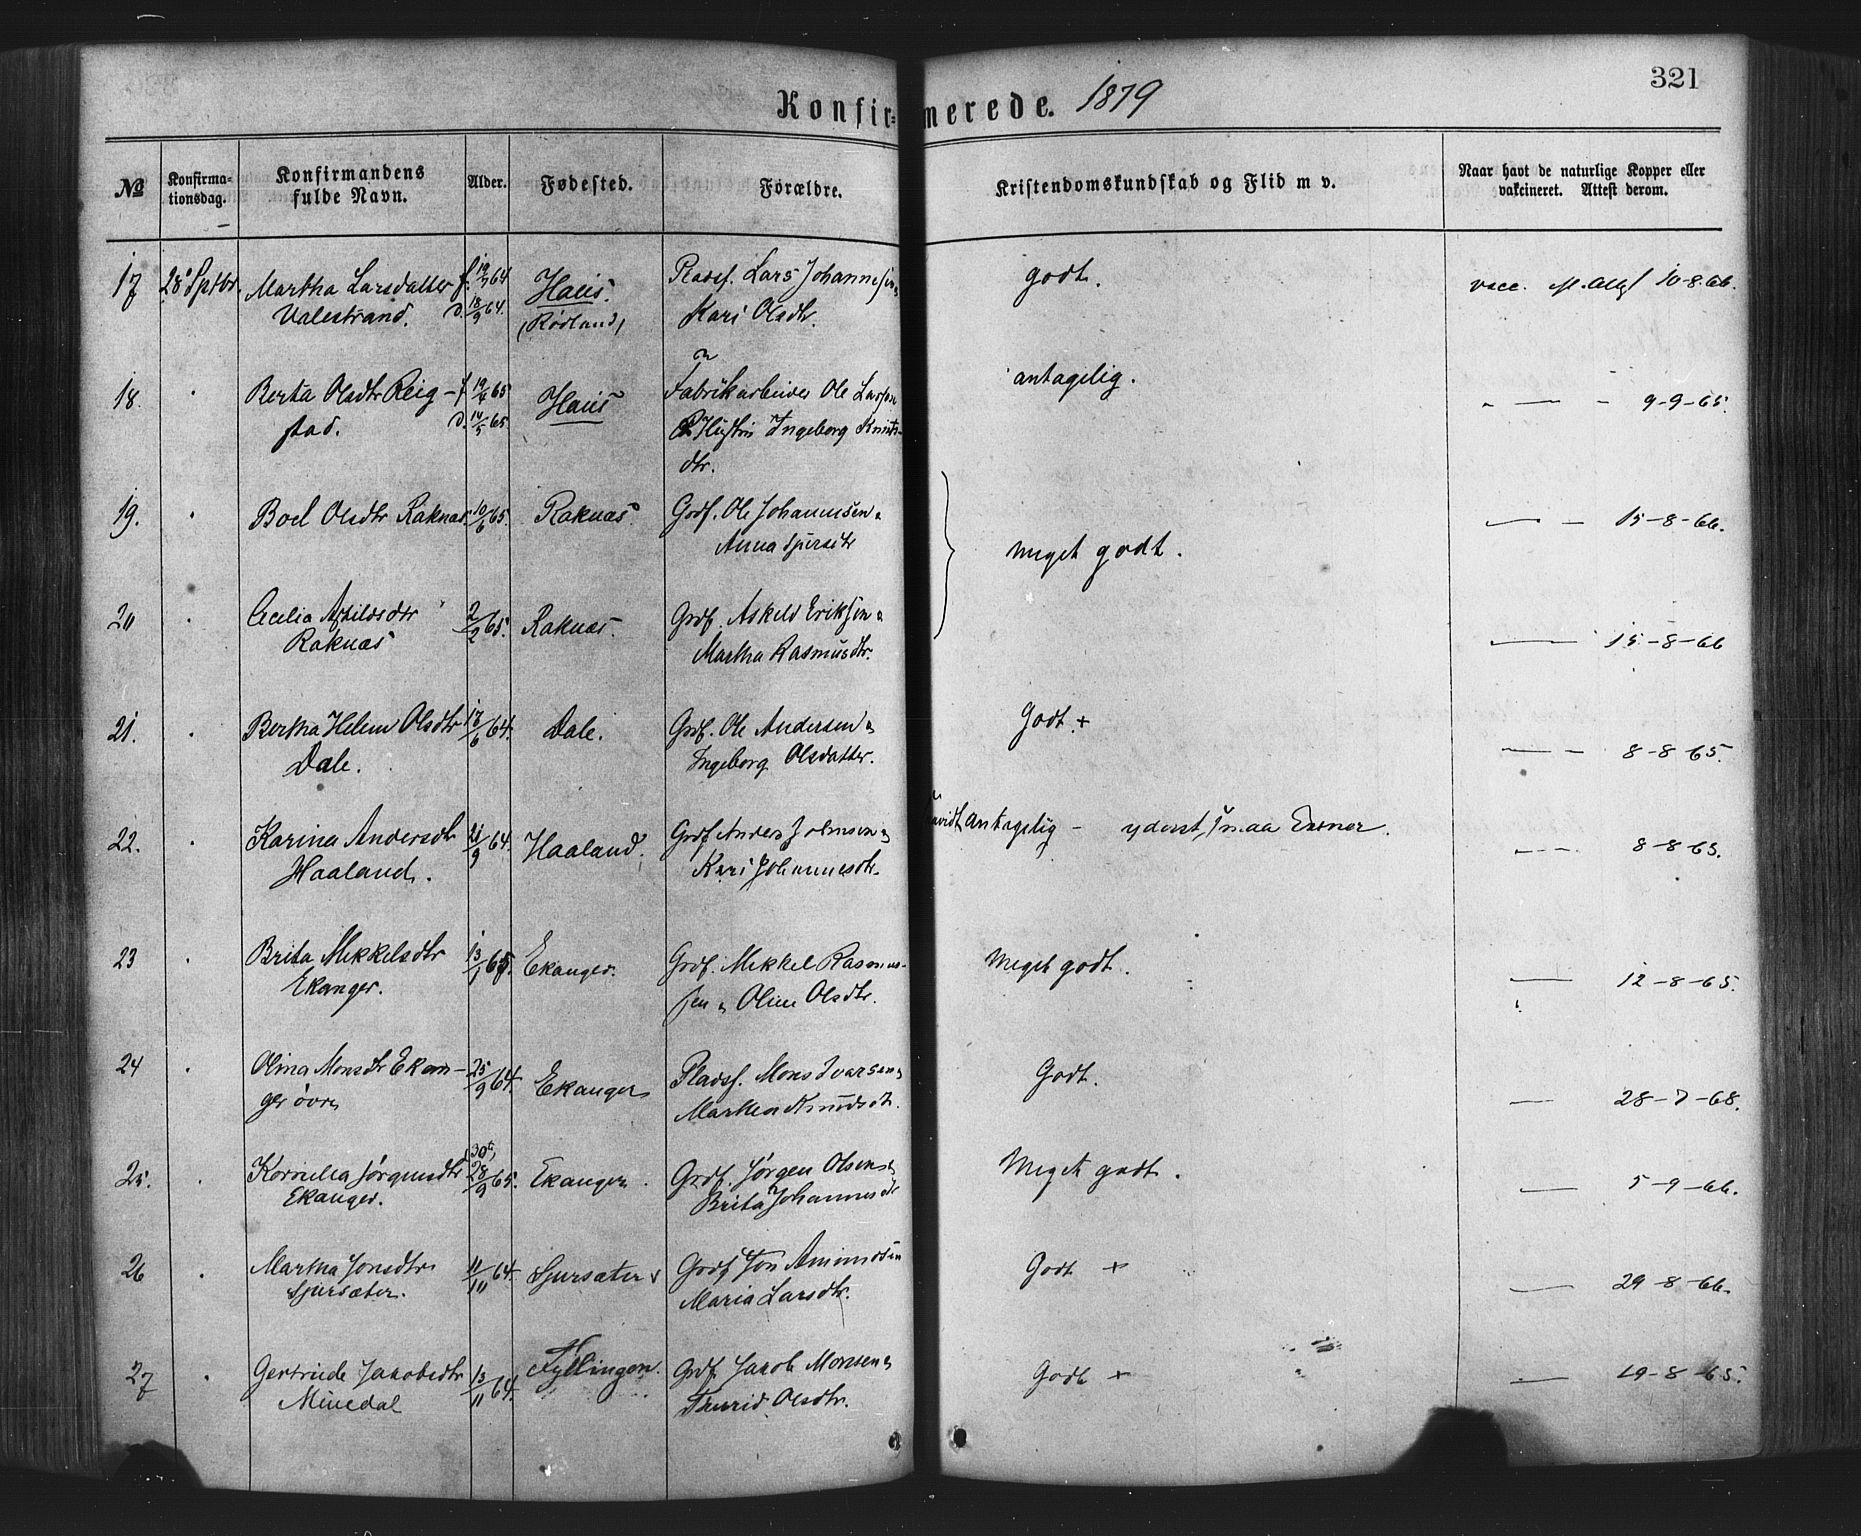 321
Konfirmerede. 1879
№ Konfirma-tionsdag. Konfirmandens fulde Navn. Alder. Fødested. Forældre. Kristendomskundskab og Flid m v. Naar havt de naturlige Kopper eller vakcineret. Attest derom.
17 28 Septbr. Martha Larsdatter f. 19/7 64 Haus. Pladsf. Lars Johannesen godt. vacc. 10-8-66.
Valestrand. d. 18/9 64. (Rødland) Kari Olsdtr.
18. Berta Olsdtr Reig- f 19/4 65 Haus Fabrikarbeider Ole Larsen antagelig. 9-9-65.
stad. d. 14/5 65 Hustru Ingeborg Knuts-
dtr.
19. Boel Olsdtr Raknæs 10/6 65. Raknæs Grdf. Ole Johannesen 15-8-66.
Anna meget godt.
20 Cecilia Askildsdtr 2/2 65. Raknæs. Grdf. Askeld Eriksen
Raknæs Martha Rasmusdtr. 15-8-66
21. Bertha Helene Olsdtr 17/6 64. Dale. Grdf. Ole Andersen Godt. + 8-8-65.
Dale. Ingeborg Olsdatter.
22. Karina Andersdtr 21/9 64. Haaland. Grdf Anders Johnsen antagelig - yderst smaa Evner. 8-8-65.
Haaland. Kari Johannesdtr.
23 Brita Mikkelsdtr 13/1 65. Ekanger. Grdf. Mikkel Rasmus- Meget godt. 12-8-65.
Ekanger. sen Oline Olsdtr.
24 Olina Monsdtr Ekan- 25/9 64. Ekanger Pladsf. Mons Ivarsen Godt. 28-7-68.
ger øvre Martha Knudsdtr.
25. Kornelia Jørgensdtr 28/9 65. Ekanger Grdf. Jørgen Olsen Meget godt. 5-9-66.
Ekanger. Brita Johannesdtr
26 Martha Jonsdtr 11/11 64. Sjursæter Grdf Jon Amundsen Godt + 29-8-66.
Sjursæter. Maria Larsdtr.
27 Gertrude Jakobsdtr 13/11 64. Hyllingen. Grdf Jakob Monsen Godt + 19-8-65.
Misedal Thurid Olsdtr.